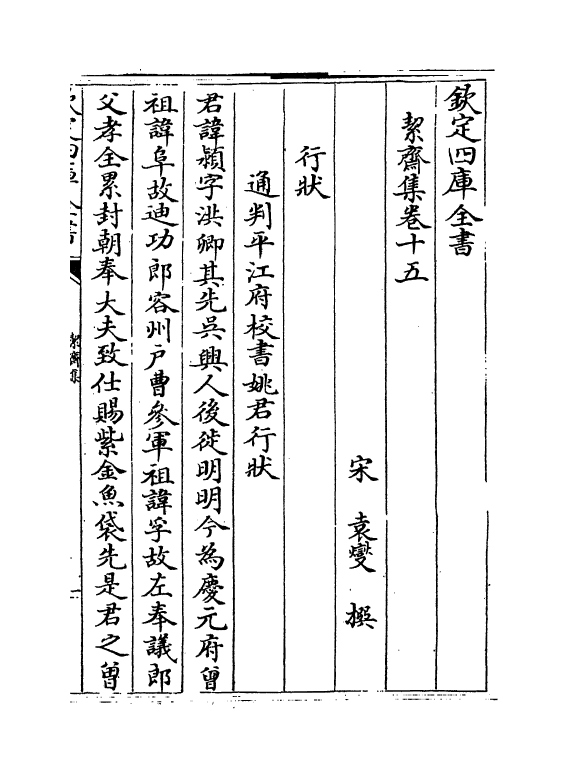 欽定四庫全書
絜齋集卷十五
宋 袁燮 撰
行狀
通判平江府校書姚君行狀
君諱潁字洪卿其先吳興人後徙明明今為慶元府曾
祖諱阜故迪功郎容州戶曹參軍祖諱孚故左奉議郎
父孝全累封朝奉大夫致仕賜紫金魚袋先是君之曾
欽定四庫全書
絜齋集
一